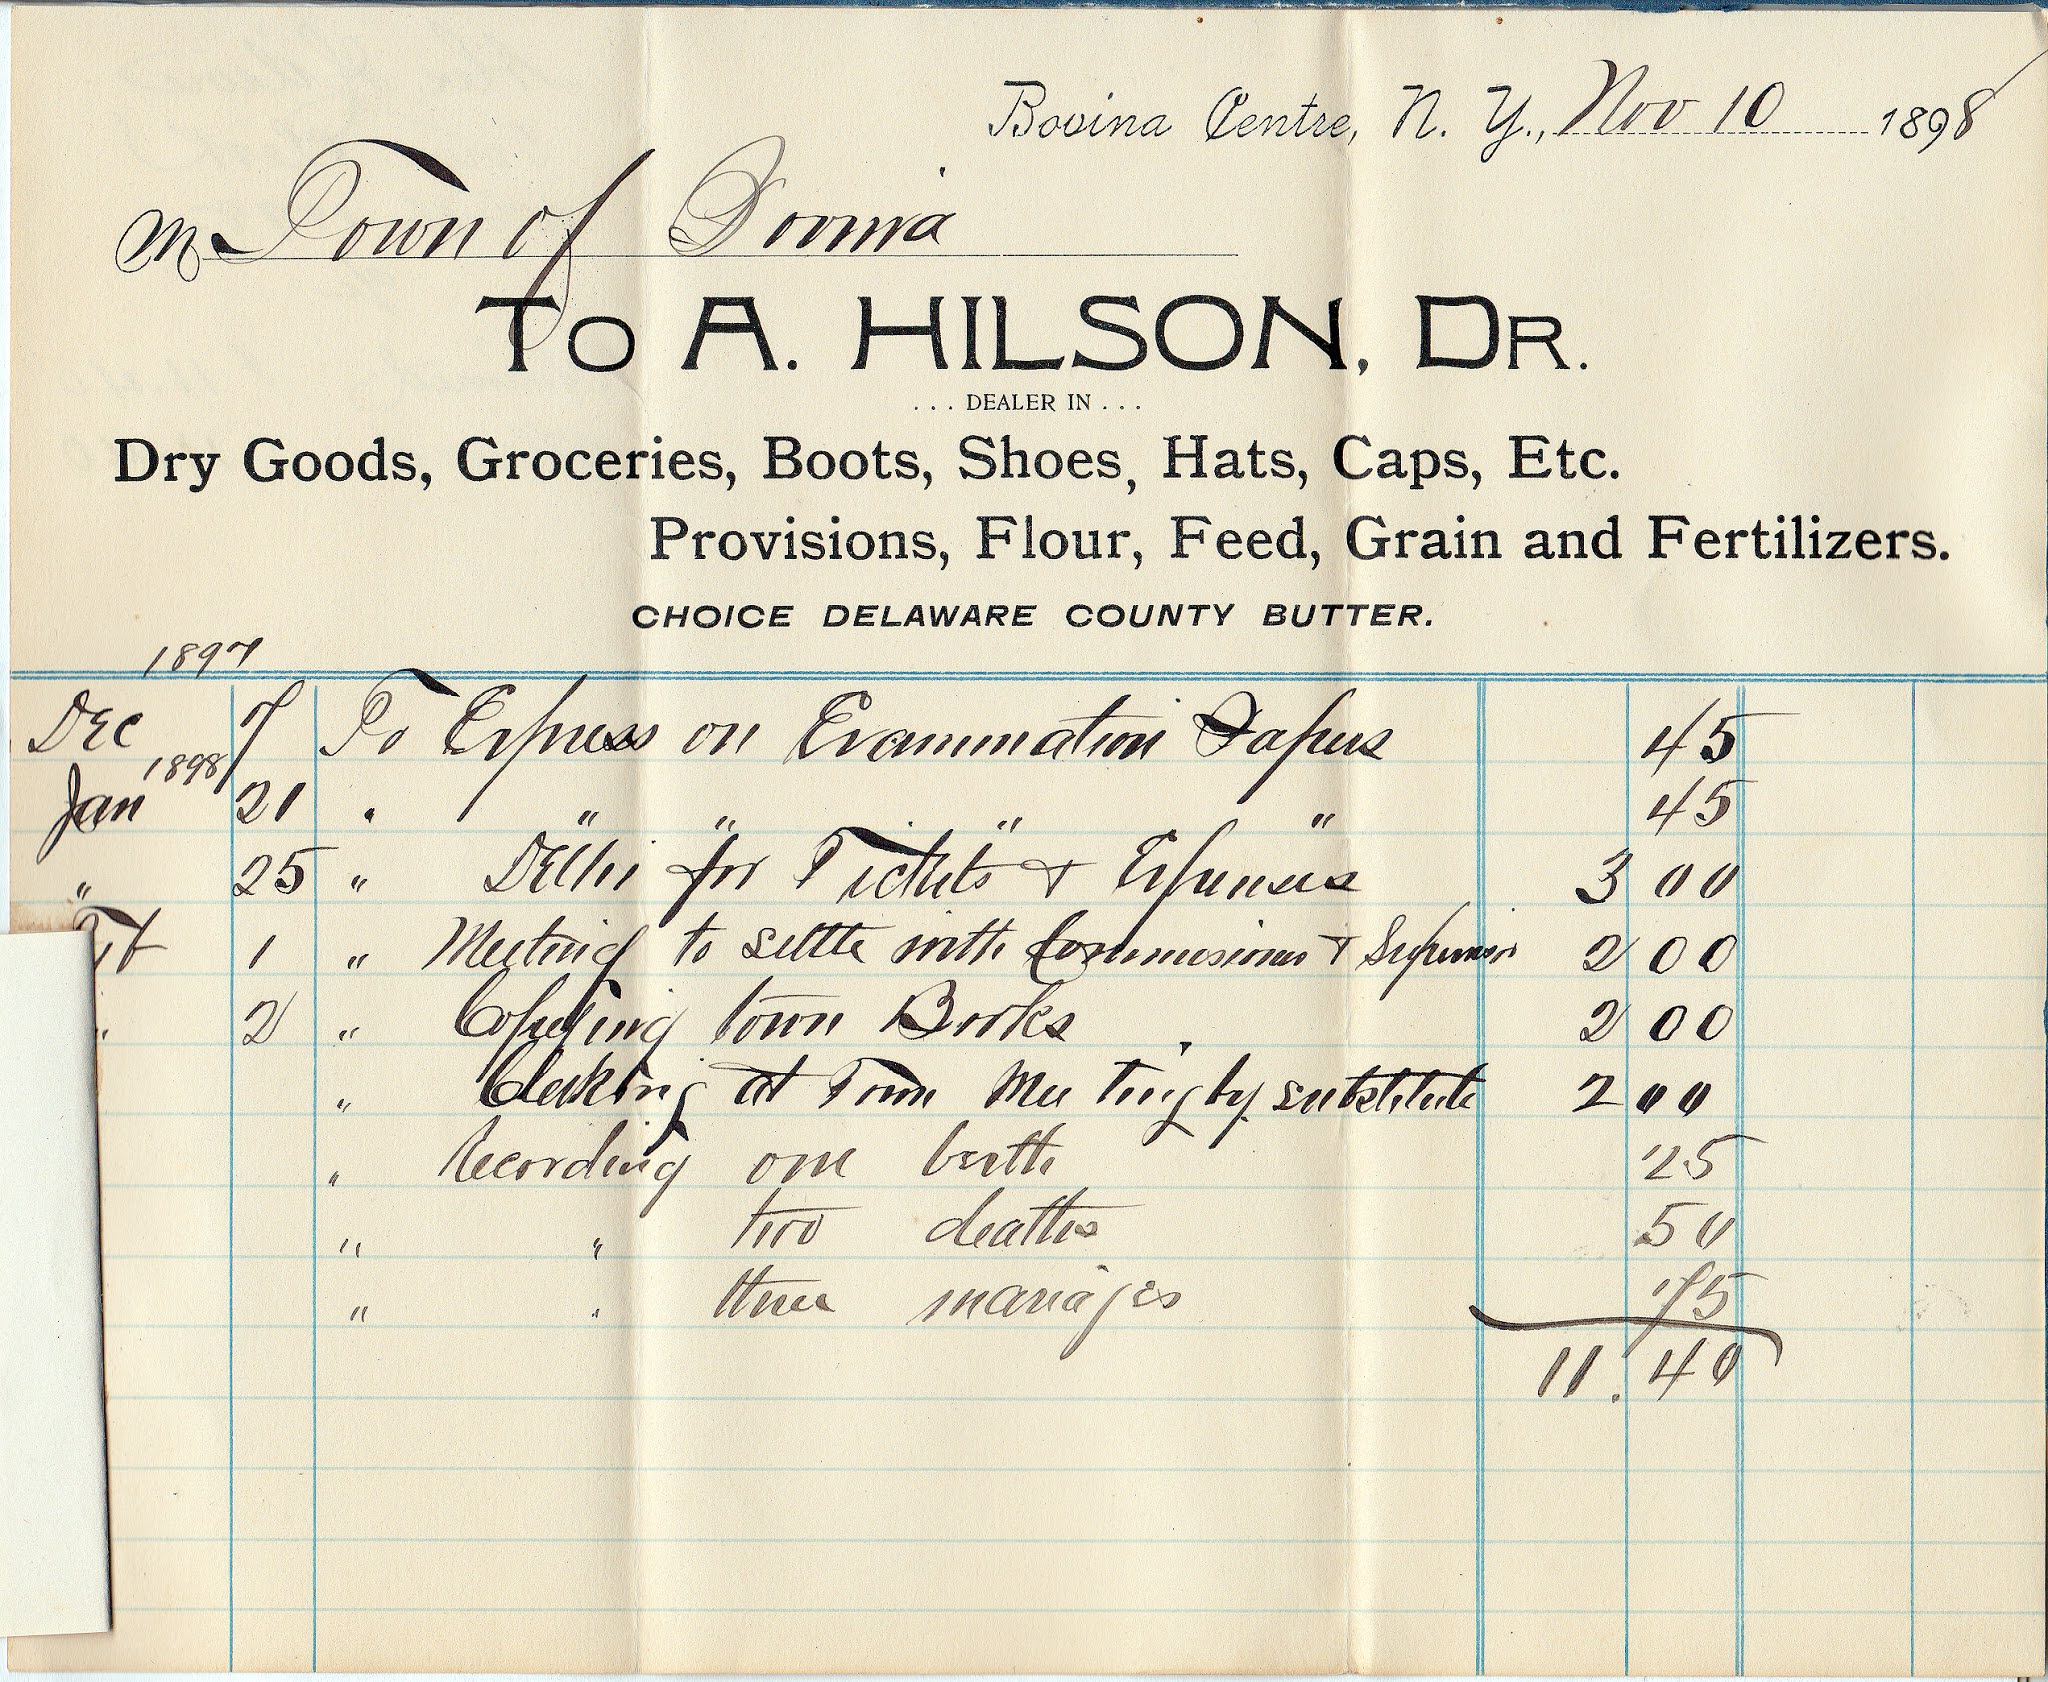 Bovina Centre, N. Y., Nov 10 1898
M Town of Bovina
TO A. HILSON, DR.
... DEALER IN ...
Dry Goods, Groceries, Boots, Shoes, Hats, Caps, Etc.
Provisions, Flour, Feed, Grain and Fertilizers.
CHOICE DELAWARE COUNTY BUTTER.
1897
Dec 7 To Express on Examination Papers 45
1898
Jan 21 " " " " " 45
" 25 " Delhi for Tickets & Expenses 3 00
1 " Meeting to settle with Commissioner & Supervisor 2 00
" 2 " Copying town Books 2 00
" Clerking at Town Meeting by substitute 2 00
" Recording one birth 25
" " two deaths 50
" " three mariages 75
11.40